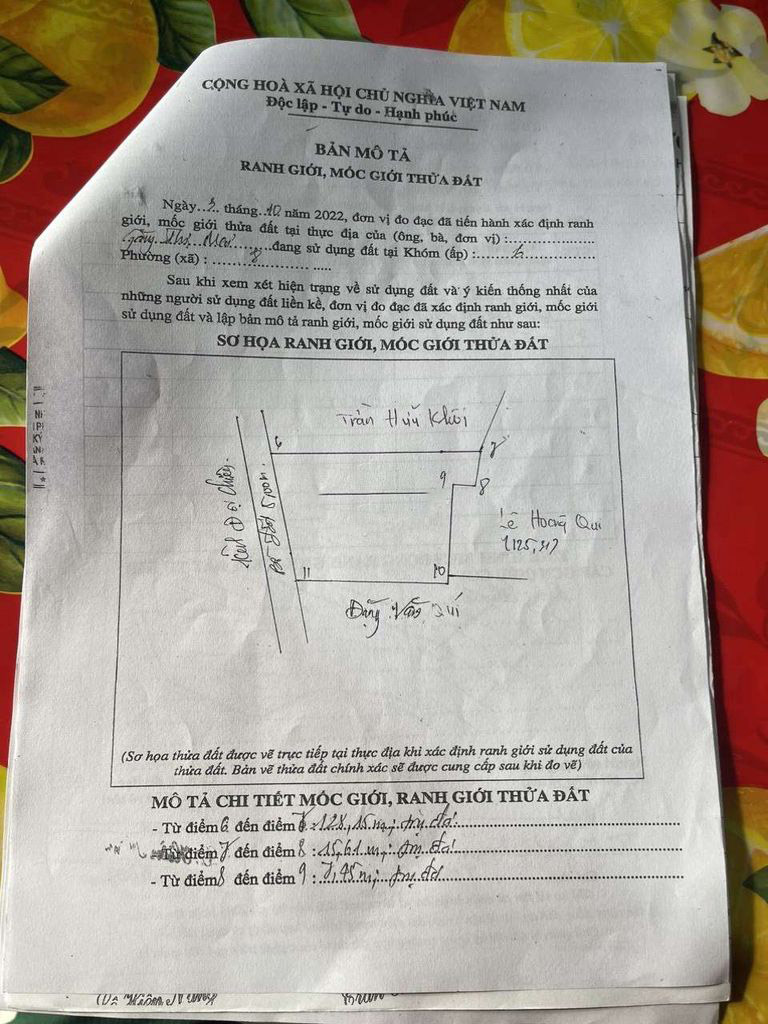 CỘNG HOÀ XÃ HỘI CHỦ NGHĨA VIỆT NAM
Độc lập - Tự do - Hạnh phúc
BẢN MÔ TẢ
RANH GIỚI, MÓC GIỚI THỬA ĐẤT
Ngày..3.. tháng..10 năm 2022, đơn vị đo đạc đã tiến hành xác định ranh
giới, mốc giới thửa đất tại thực địa của (ông, bà, đơn vị) :....................
đang sử dụng đất tại Khóm (ấp) :......
Phường (xã) : ......8......
Sau khi xem xét hiện trạng về sử dụng đất và ý kiến thống nhất của
những người sử dụng đất liền kề, đơn vị đo đạc đã xác định ranh giới, mốc giới
sử dụng đất và lập bản mô tả ranh giới, mốc giới sử dụng đất như sau:
SƠ HỌA RANH GIỚI, MÓC GIỚI THỬA ĐẤT
Trần Hữu Khôi
6
7
9
8
Lê Hoàng Qui
11
10
Đặng Văn
(Sơ họa thửa đất được vẽ trực tiếp tại thực địa khi xác định ranh giới sử dụng đất của
thửa đất. Bản vẽ thửa đất chính xác sẽ được cung cấp sau khi đo vẽ)
MÔ TẢ CHI TIẾT MÓC GIỚI, RANH GIỚI THỬA ĐẤT
- Từ điểm 6 đến điểm 7 : 128,15m; trụ đá
- Từ điểm 7 đến điểm 8 : 15,61m; trụ đá
- Từ điểm 8 đến điểm 9 : 7,45m; trụ đá